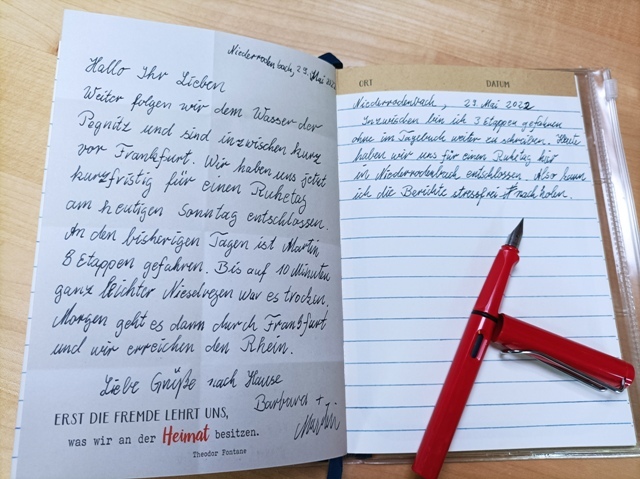 Niederrodenbach, 29. Mai 2022
Hallo Ihr Lieben
Weiter folgen wir dem Wasser der
Pegnitz und sind inzwischen kurz
vor Frankfurt. Wir haben uns jetzt
kurzfristig für einen Ruhetag
am heutigen Sonntag entschlossen.
An den bisherigen Tagen ist Martin
8 Etappen gefahren. Bis auf 10 Minuten
ganz leichter Nieselregen war es trocken,
Morgen geht es dann durch Frankfurt
und wir erreichen den Rhein.
Liebe Grüße nach Hause
Barbara +
Martin
ERST DIE FREMDE LEHRT UNS,
was wir an der Heimat besitzen.
Theodor Fontane
ORT DATUM
Niederrodenbach, 29. Mai 2022
Inzwischen bin ich 3 Etappen gefahren
ohne im Tagebuch weiter zu schreiben. Heute
haben wir uns für einen Ruhetag hier
in Niederrodenbach entschlossen. Also kann
ich die Berichte stressfrei nachholen.